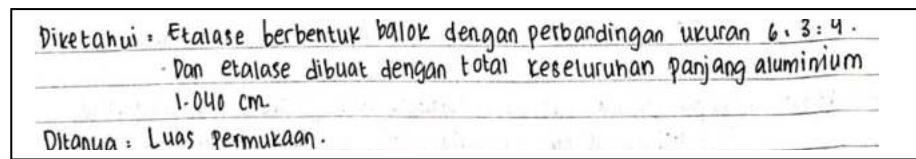 Diketahui : Etalase berbentuk balok dengan perbandingan ukuran 6 : 3 : 4.
- Dan etalase dibuat dengan total keseluruhan panjang aluminium
1.040 cm.
Ditanya : Luas permukaan.